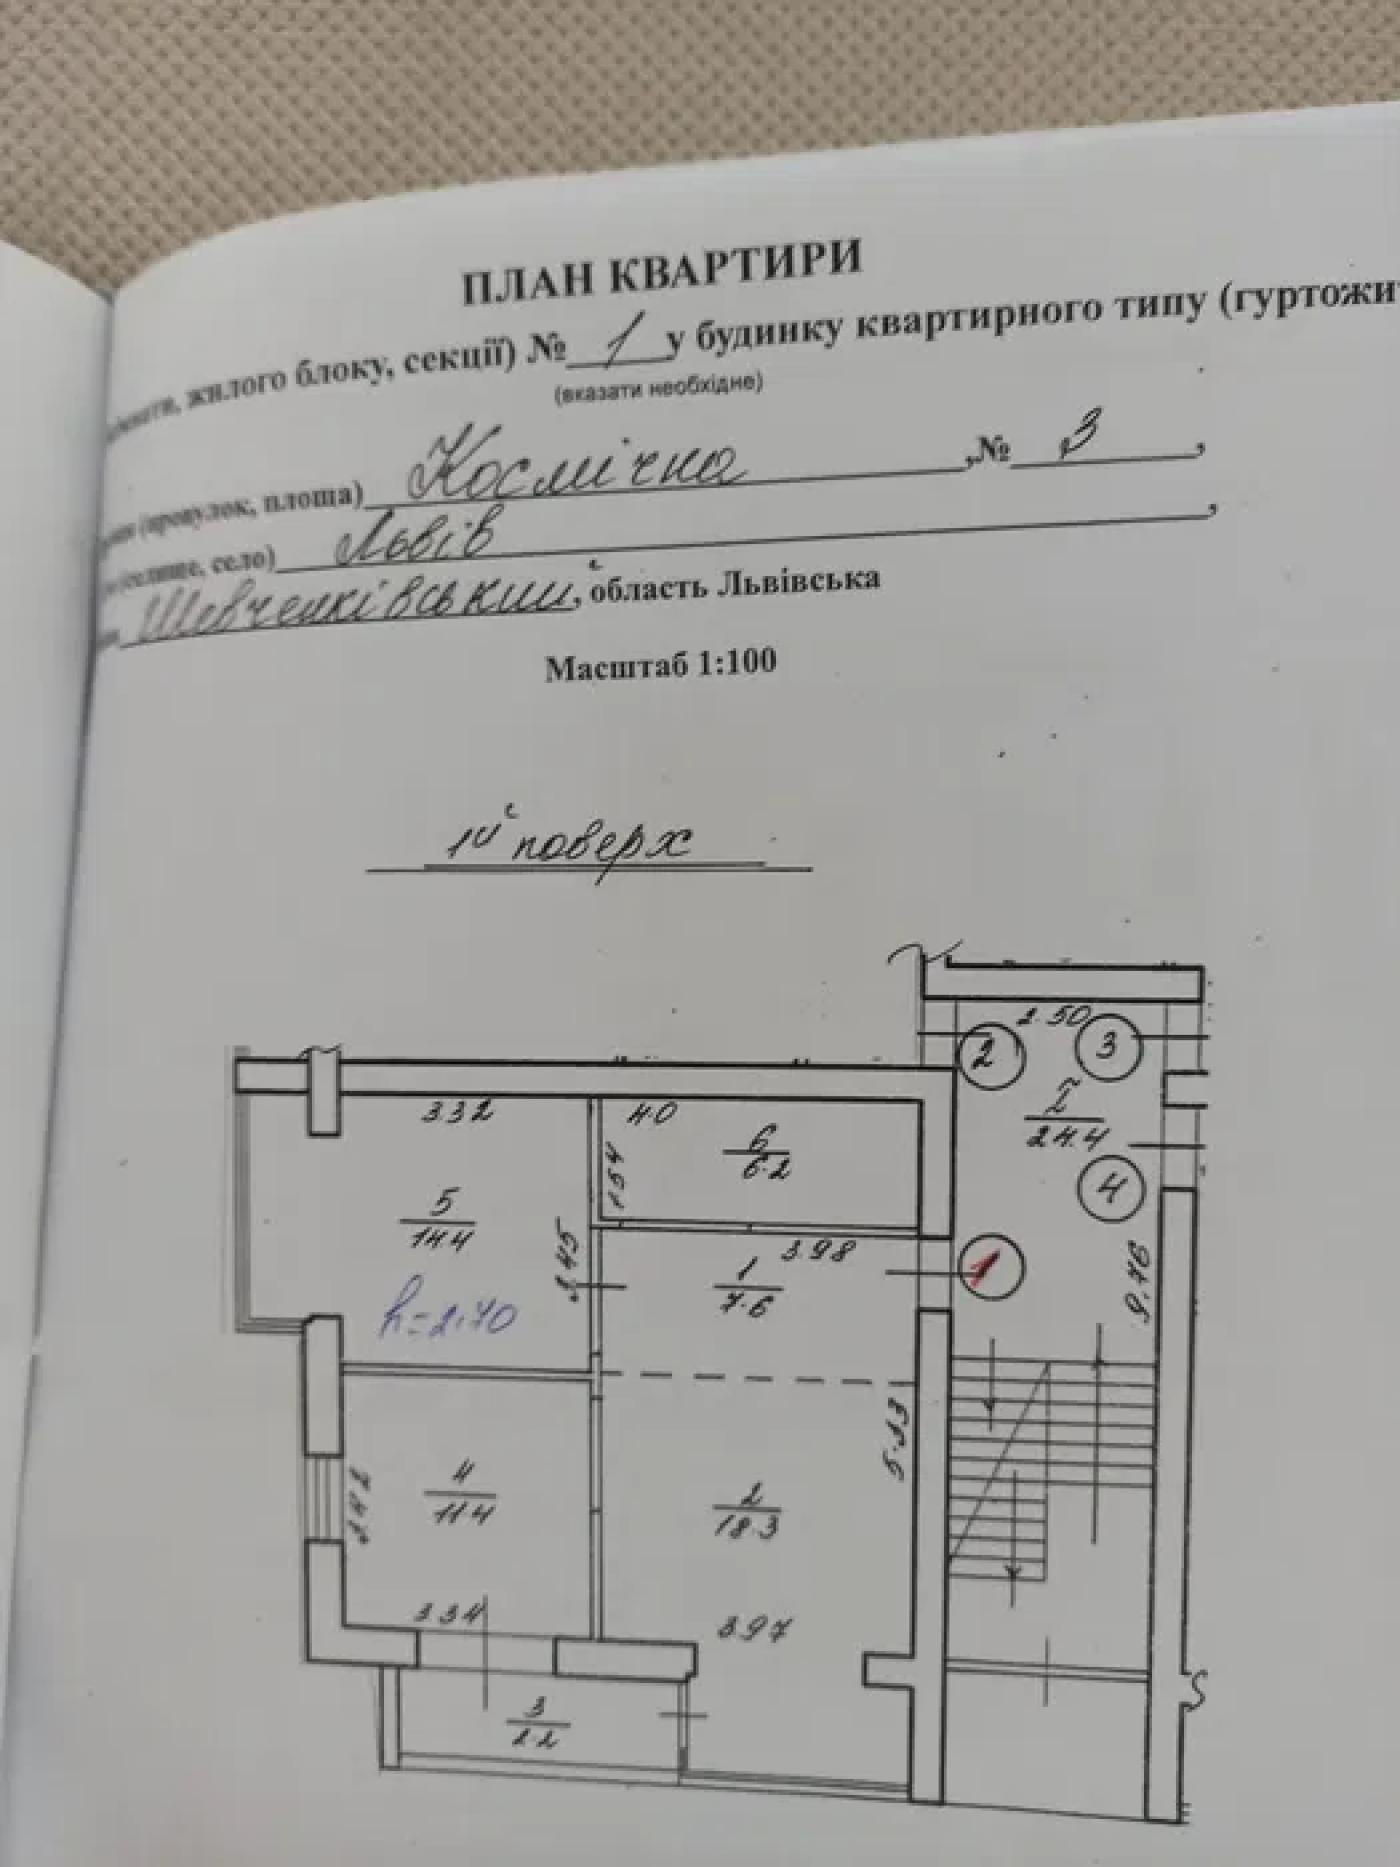 ПЛАН КВАРТИРИ
жилого блоку, секції) № 1 у будинку квартирного типу (гуртожи
(вказати необхідне)
(провулок, площа) Космічна ,№ 3 ,
(селище, село) Львів ,
Шевченківський, область Львівська
Масштаб 1:100
1й поверх
2.50
2 3
I
24.4
4
9.76
1
3.32
4.0
6
6.2
1.54
5
14.4
3.45
3.98
1
7.6
h=2.70
5.13
4
11.4
3.42
2
18.3
3.34
3.97
3
2.2